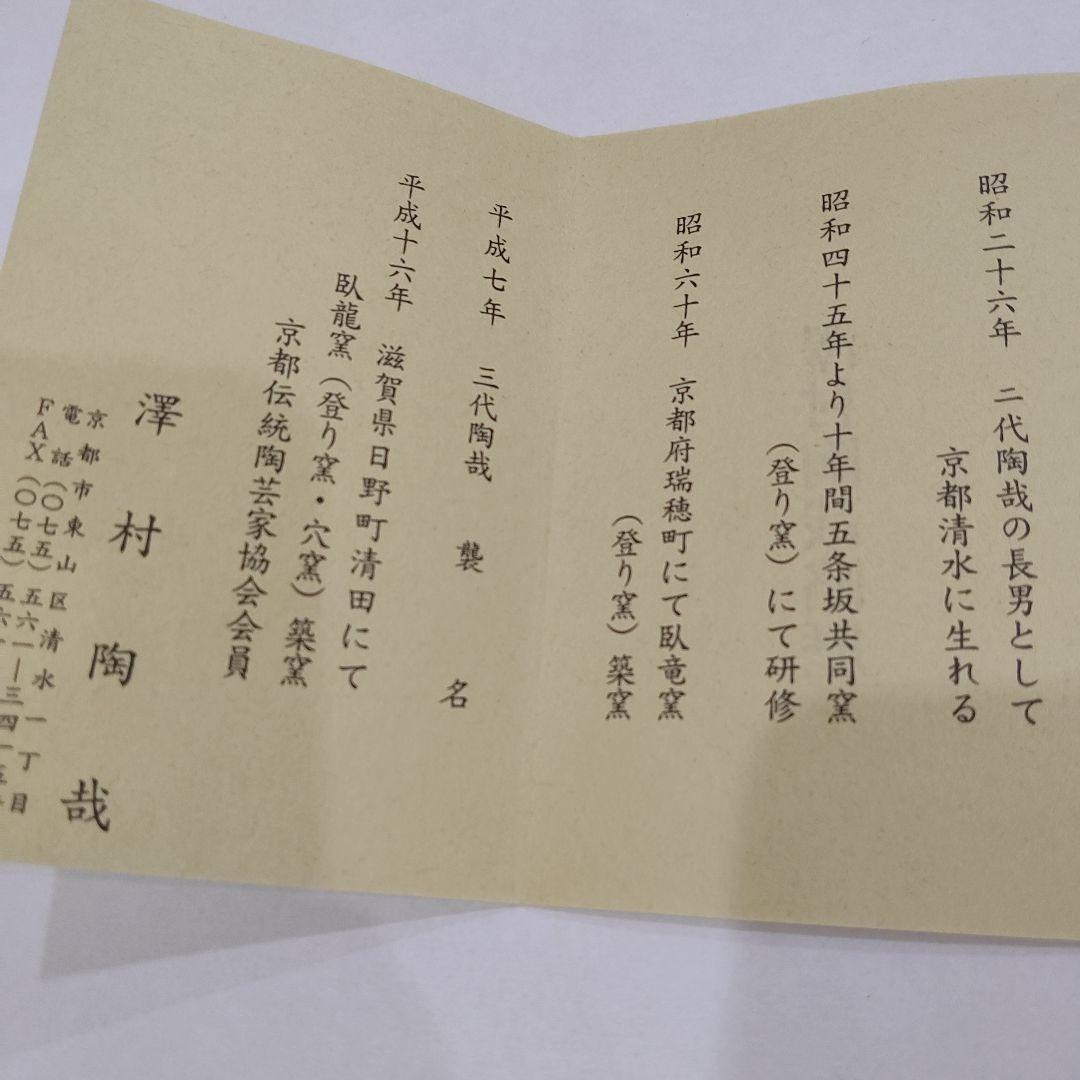 昭和二十六年 二代陶哉の長男として
京都清水に生れる
昭和四十五年より十年間五条坂共同窯
(登り窯)にて研修
昭和六十年 京都府瑞穂町にて臥竜窯
(登り窯)築窯
平成七年 三代陶哉 襲名
平成十六年 滋賀県日野町清田にて
臥龍窯(登り窯・穴窯)築窯
京都伝統陶芸家協会会員
澤村陶哉
京都市東山区清水一丁目
電話(〇七五)五六一―三四一
FAX(〇七五)五六